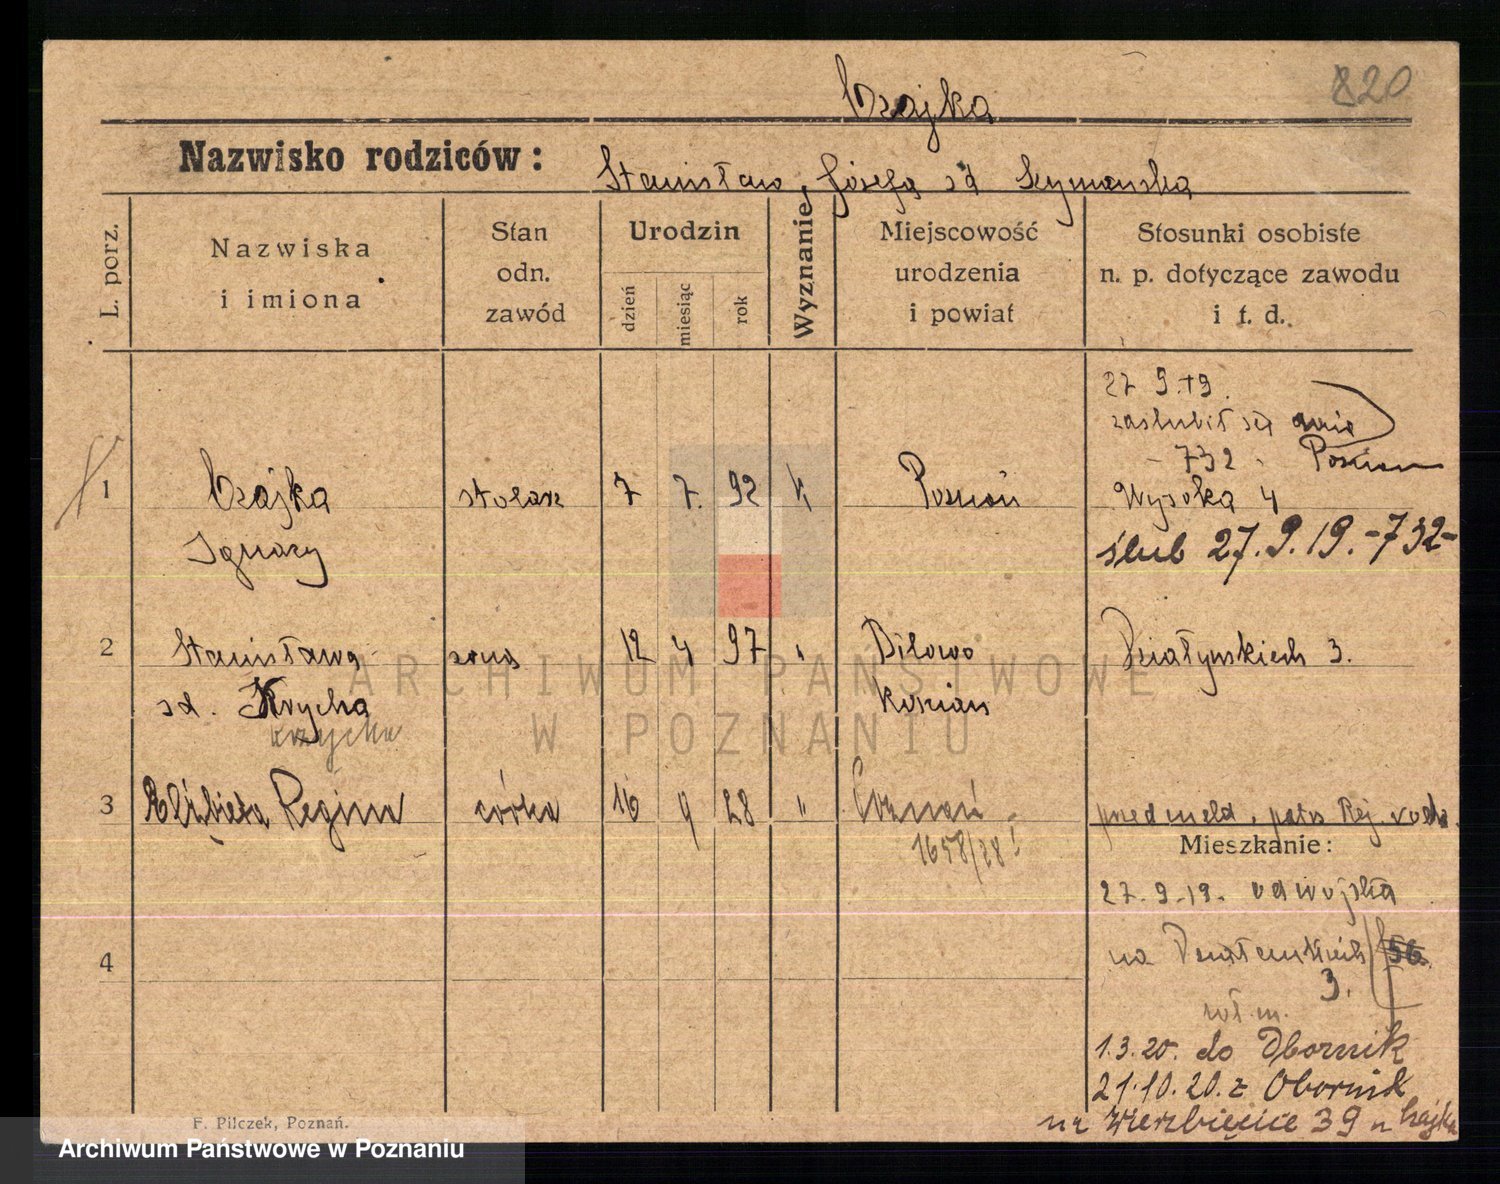 Czajka
820
Nazwisko rodziców:
Stanisław, Józefa zd Szymańska
L. porz.
Nazwiska
i imiona
Stan
odn.
zawód
Urodzin
dzień
miesiąc
rok
Wyznanie
Miejscowość
urodzenia
i powiat
Stosunki osobiste
n. p. dotyczące zawodu
i t. d.
27 9.19.
zaślubił się
- 732 -
1
Czajka
Ignacy
stolarz
7
7.
92
k,
Poznań
Wysoka 4
ślub 27.9.19.-732-
2
Stanisława
zd. Krycha
żona
12
4
97
"
Bilowo
Kościan
Działyńskich 3.
3
Elżbieta Regina
córka
16
9
28
"
Poznań
1658/28!
przedmeld.
Mieszkanie:
27.9.19. od wojska
4
na 56.
3.
1.3.20. do Obornik
21.10.20. z Obornik
na Wierzbięcice 39 u Czajka
F. Pilczek, Poznań.
ARCHIWUM PAŃSTWOWE
W POZNANIU
Archiwum Państwowe w Poznaniu